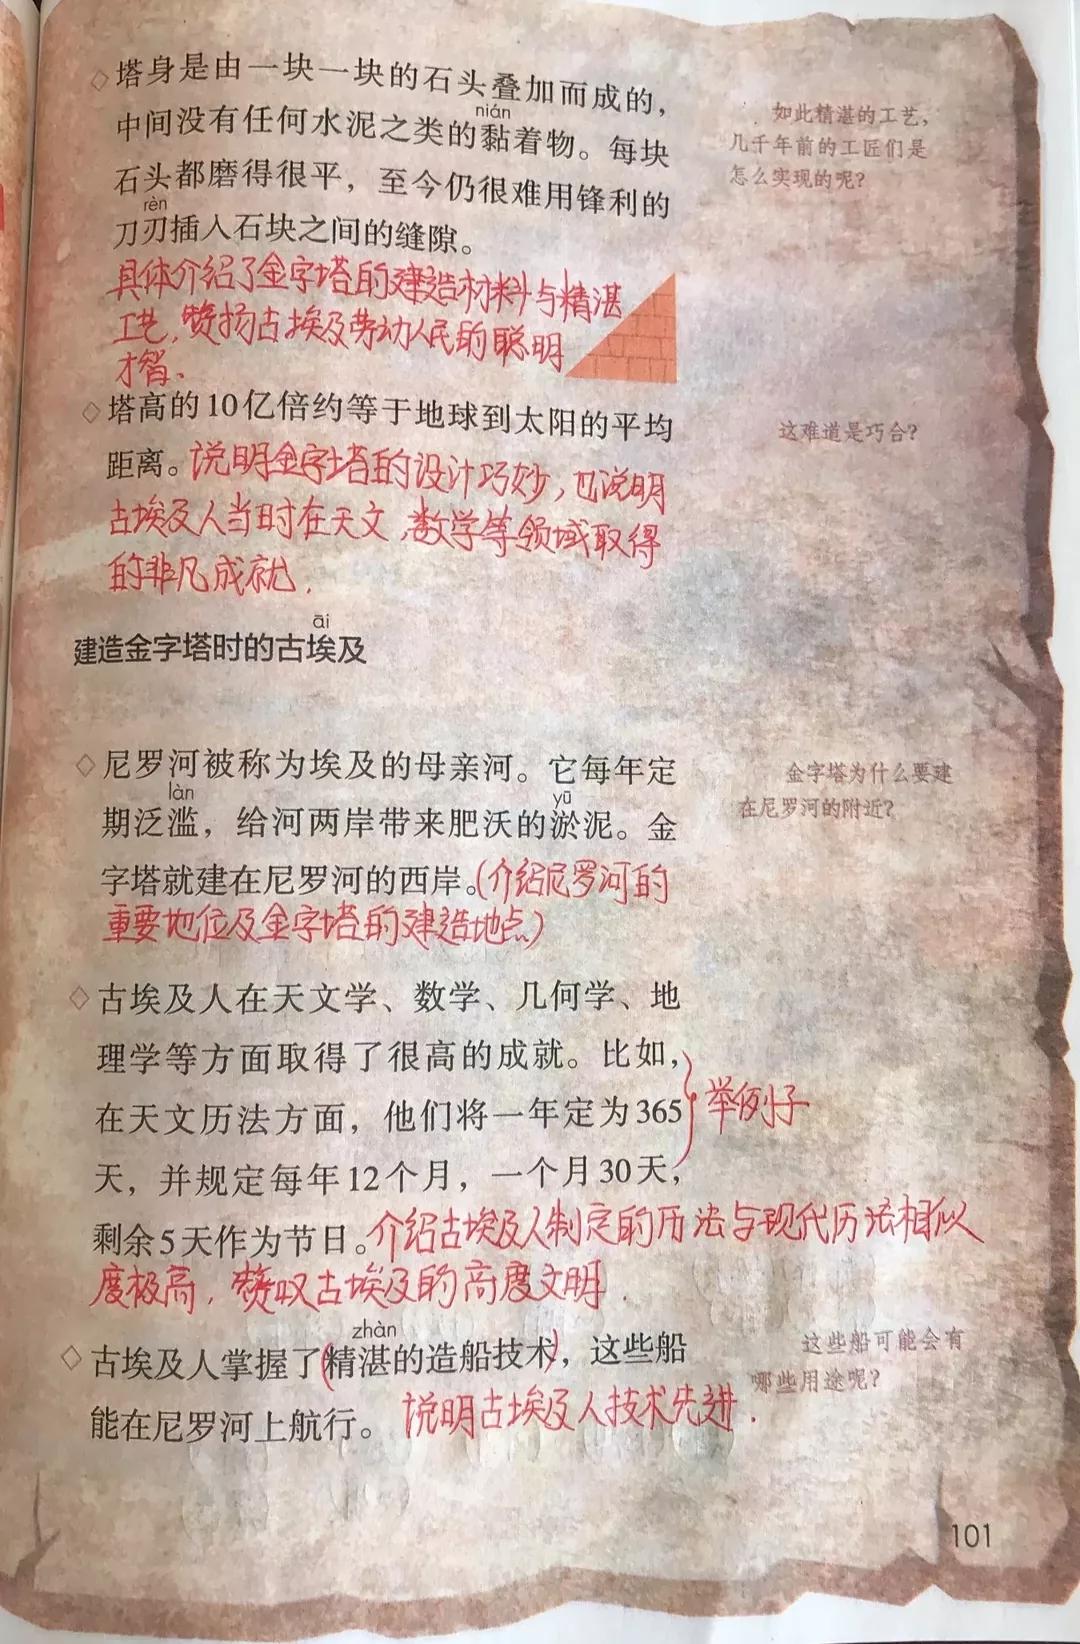 塔身是由一块一块的石头叠加而成的，
nián
中间没有任何水泥之类的黏着物。每块
石头都磨得很平，至今仍很难用锋利的
rèn
刀刃插入石块之间的缝隙。
如此精湛的工艺，
几千年前的工匠们是
怎么实现的呢？
具体介绍了金字塔的建造材料与精湛
工艺，赞扬古埃及劳动人民的聪明
才智、
塔高的10亿倍约等于地球到太阳的平均
距离。说明金字塔的设计巧妙，也说明
古埃及人当时在天文、数学等领域取得
的非凡成就．
这难道是巧合？
āi
建造金字塔时的古埃及
尼罗河被称为埃及的母亲河。它每年定
làn yū
期泛滥，给河两岸带来肥沃的淤泥。金
字塔就建在尼罗河的西岸。（介绍尼罗河的
重要地位及金字塔的建造地点）
金字塔为什么要建
在尼罗河的附近？
古埃及人在天文学、数学、几何学、地
理学等方面取得了很高的成就。比如，
在天文历法方面，他们将一年定为365
天，并规定每年12个月，一个月30天，
举例子
剩余5天作为节日。介绍古埃及人制定的历法与现代历法相似
度极高，赞叹古埃及的高度文明．
zhàn
古埃及人掌握了(精湛的造船技术)，这些船
能在尼罗河上航行。 说明古埃及人技术先进．
这些船可能会有
哪些用途呢？
101